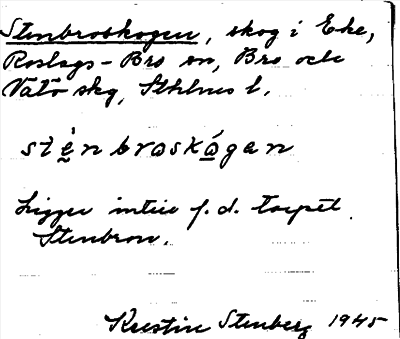 Stenbroskogen, skog i Eke,
Roslags-Bro sn, Bro och
Vätö skg, Sthlms l.
stènbroskógen
Ligger intill f.d. torpet
Stenbron.
Kerstin Stenberg 1945